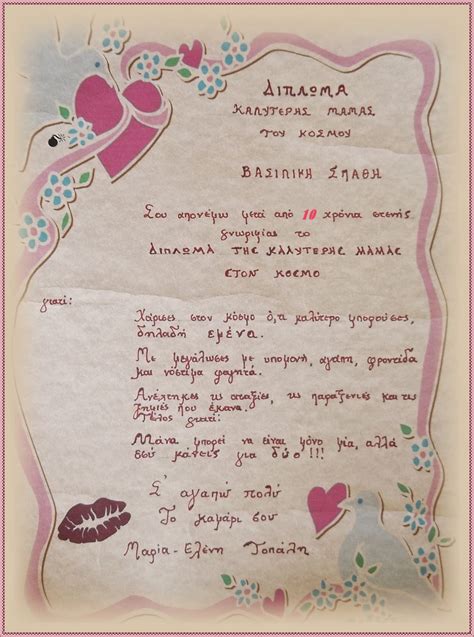 ΔΙΠΛΩΜΑ
ΚΑΛΥΤΕΡΗΣ ΜΑΜΑΣ
ΤΟΥ ΚΟΣΜΟΥ
ΒΑΣΙΛΙΚΗ ΣΠΑΘΗ
Σου απονέμω μετά από 10 χρόνια στενής
γνωριμίας το
ΔΙΠΛΩΜΑ ΤΗΣ ΚΑΛΥΤΕΡΗΣ ΜΑΜΑΣ
ΣΤΟΝ ΚΟΣΜΟ
γιατί:
Χάρισες στον κόσμο ό,τι καλύτερο μπορούσες,
δηλαδή εμένα.
Με μεγάλωσες με υπομονή, αγάπη, φροντίδα
και νόστιμα φαγητά.
Ανέχτηκες τις αταξίες, τις παραξενιές και τις
ζημιές που έκανα.
Τέλος γιατί:
Μάνα μπορεί να είναι μόνο μία, αλλά
εσύ κάνεις για δύο!!!
Σ' αγαπώ πολύ
Το καμάρι σου
Μαρία - Ελένη Τοπάλη